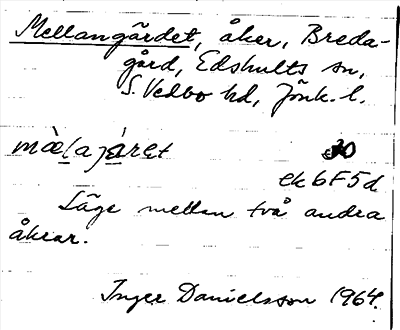 Mellangärdet, åker, Breda-
gård, Edshults sn,
S. Vedbo hd, Jönk. l.
mæ̀lajáret
30
ek 6F5d
Läge mellan två andra
åkrar.
Inger Danielsson 1964.